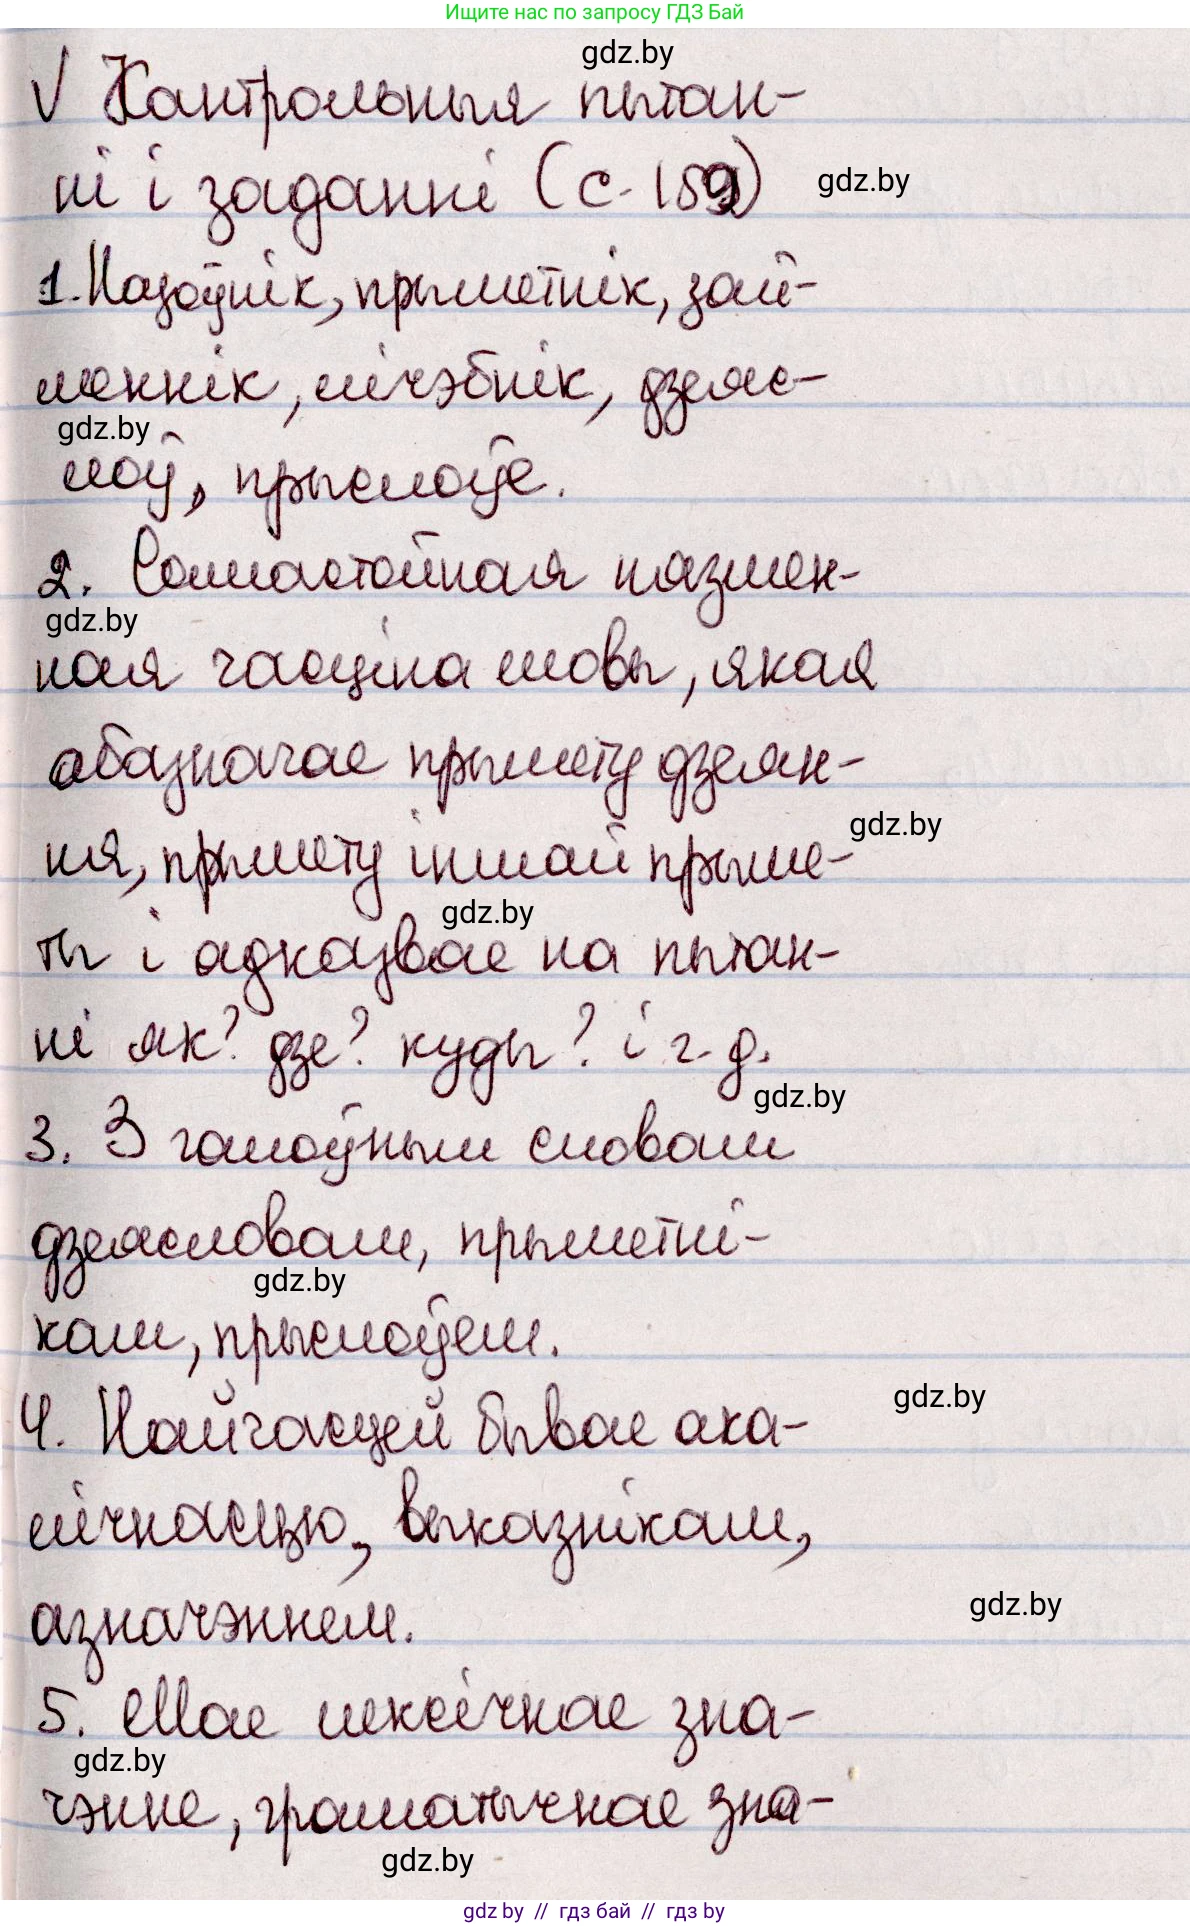 Ищите нас по запросу ГДЗ Бай
gdz.by
√ Кантрольныя пытан-
ні і заданні (с. 159)
gdz.by
1. Назоўнік, прыметнік, зай-
меннік, лічэбнік, дзеяс-
gdz.by
лоў, прыслоўе.
2. Самастойная нязмен-
gdz.by
ная часціна мовы, якая
абазначае прымету дзеян-
gdz.by
ня, прымету іншай прыме-
gdz.by
ты і адказвае на пытан-
ні як? дзе? куды? і г. д.
gdz.by
3. З галоўным словам
дзеясловам, прыметні-
gdz.by
кам, прыслоўем.
gdz.by
4. Найчасцей бывае ака-
лічнасцю, выказнікам,
gdz.by
азначэннем.
5. Мае лексічнае зна-
gdz.by
чэнне, граматычнае зна-
gdz.by
gdz by // гдз бай // gdz by